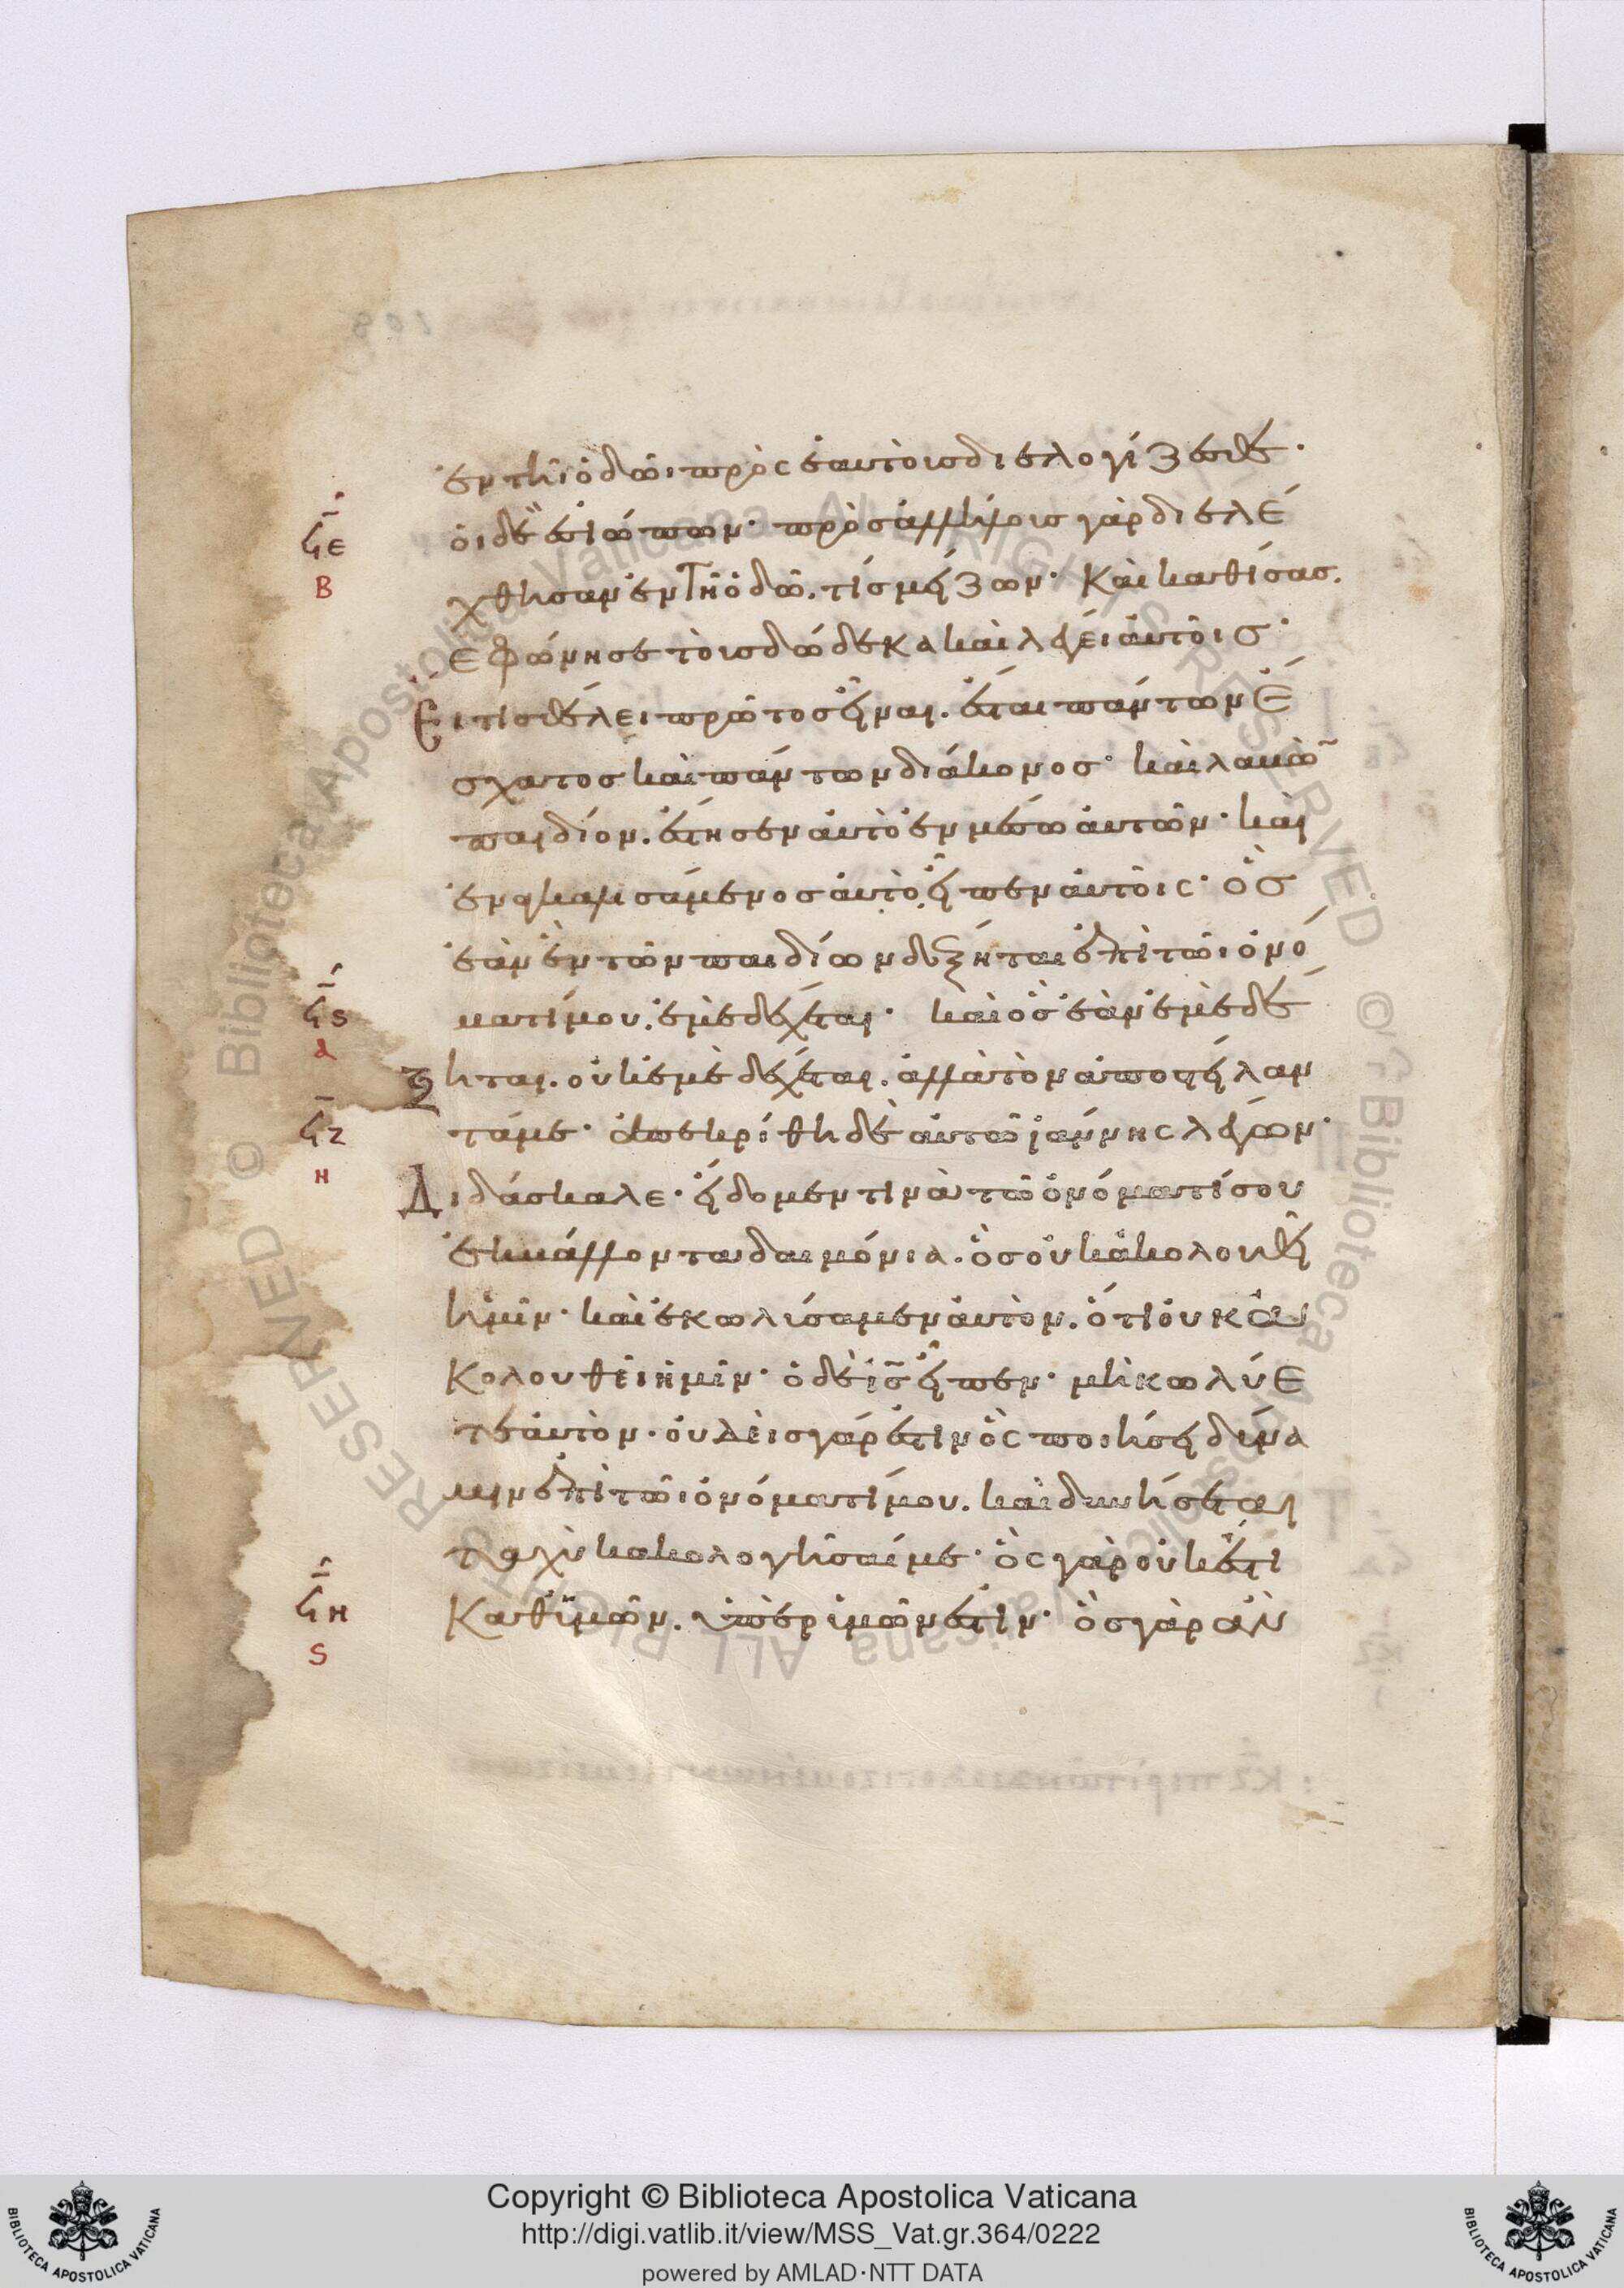 ἐν τῆι ὁδῶι πρὸς ἑαυτοὺσ διελογίζεσθε·
ϟε οἱ δὲ ἐσιώπων· πρὸσ ἀλλήλουσ γὰρ διελέ
β χθησαν ἐν τῆ ὁδῶ. τίσ μείζων· Καὶ καθίσασ.
ἐφώνησε τοὺσ δώδεκα καὶ λέγει αὐτοῖσ·
Ει τίσ θέλει πρῶτοσ εἶναι. ἔσται πάντων ἔ
σχατοσ καὶ πάντων διάκονοσ· καὶ λαβὼ̄
παιδίον. ἔστησεν αὐτὸ ἐν μέσω αὐτῶν· καὶ
ἐναγκαλισάμενοσ αὐτὸ εἶπεν αὐτοῖς· ὃσ
ἐὰν ἓν τῶν παιδίων δέξηται ἐπὶ τῶι ὀνό
ϟς ματί μου. ἐμὲ δέχεται· καὶ ὃσ ἐὰν ἐμὲ δέ
α ξηται. οὐκ ἐμὲ δέχεται. ἀλλὰ τὸν ἀποστείλαν
ϟζ τά με· ἀπεκρίθη δὲ αὐτῶ ἰωάννης λέγων·
η Διδάσκαλε· εἴδομεν τινὰ τῶ ὀνόματί σου
ἐκβάλλοντα δαιμόνια. ὃσ οὐκ ἀκολουθεῖ
ἡμῖν· καὶ ἐκωλύσαμεν αὐτὸν. ὅτι οὐκ ἀ
κολουθεῖ ἡμῖν· ὁ δὲ ι̅σ̅ εἶπεν· μὴ κωλύε
τε αὐτὸν· οὐδεὶσ γάρ ἐστιν ὃς ποιήσει δύνα
μιν ἐπὶ τῶι ὀνόματί μου. καὶ δυνήσεται
ταχὺ κακολογῆσαί με· ὃς γὰρ οὐκ ἔστι
ϟη καθ' ὑμῶν. ὑπὲρ ὑμῶν ἐστιν· ὃσ γὰρ ἂν
ς
Copyright © Biblioteca Apostolica Vaticana
http://digi.vatlib.it/view/MSS_Vat.gr.364/0222
powered by AMLAD·NTT DATA